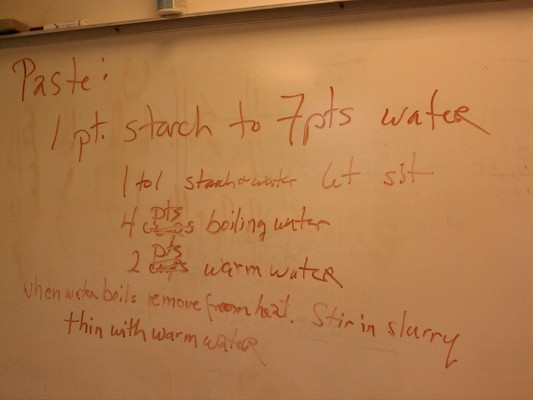 Paste:
1 pt. starch to 7pts water
1 to 1 starch & water let sit
4 pts boiling water
2 pts warm water
when water boils remove from heat. Stir in slurry
thin with warm water